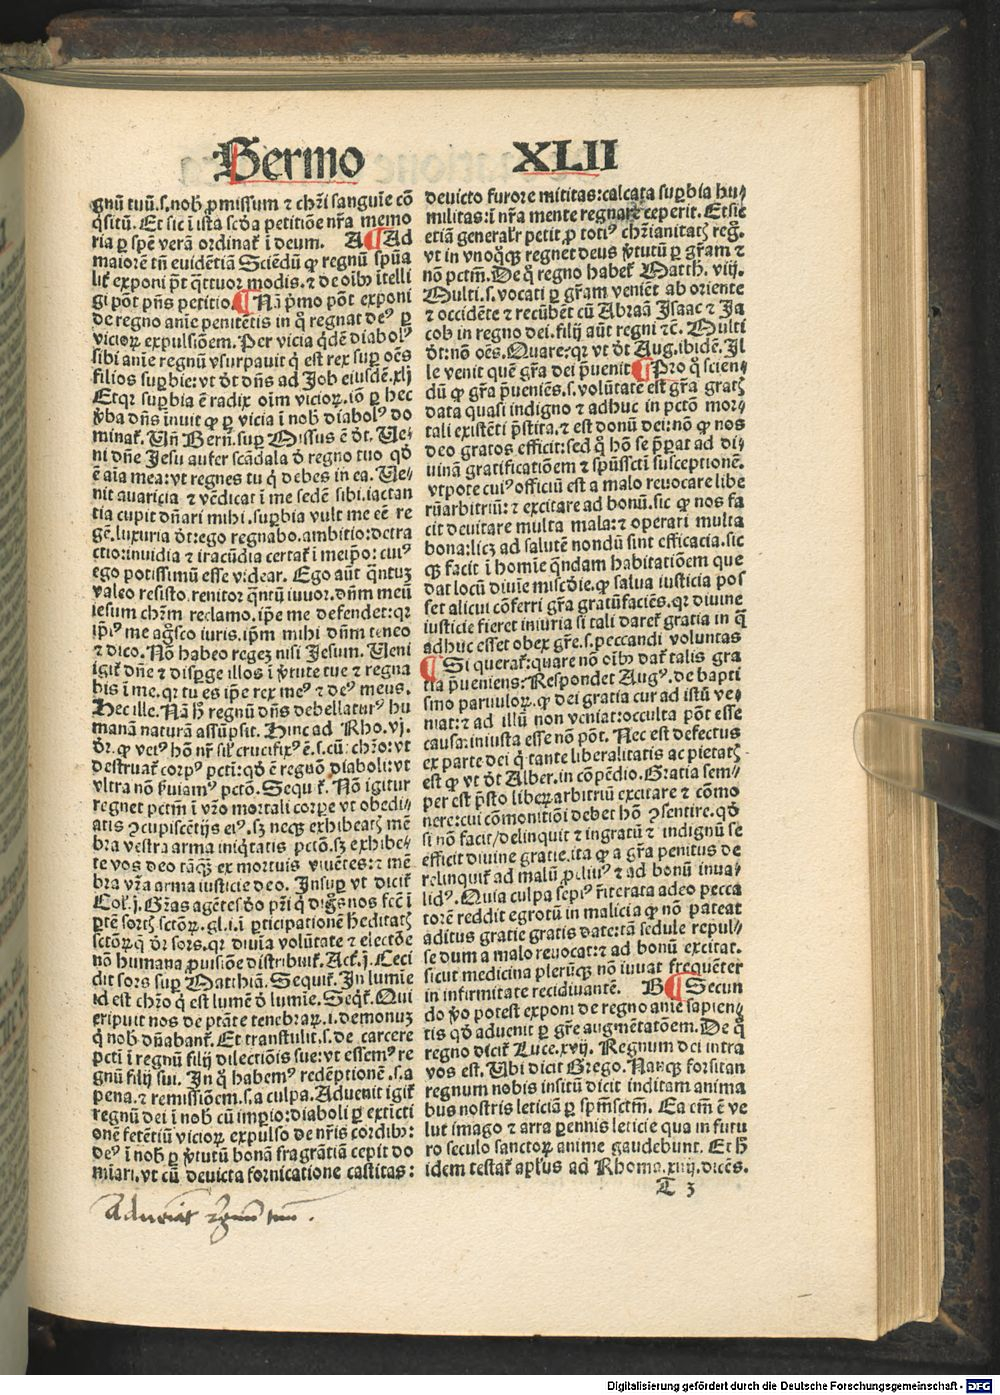 Sermo XLII
gnū tuū.s.nob̄ ꝓmissum ⁊ chr̄i sanguīe cō
q̄situ. Et sic ī ista scd̄a petitiōe nr̄a memo
ria ꝑ spē verā ordinat̄ ī deum. A ¶ Ad
maiorē tn̄ euidētiā Sciēdū ꝙ regnū spūa
lit̄ exponi pōt q̄ttuor modis.⁊ de oīb; ītelli
gi pōt pn̄s petitio. ¶ Nā pͥmo pōt exponi
de regno anīe penitētis in q̄ regnat deꝰ ꝑ
vicioꝝ expulsiōem. Per vicia q̄dē diabolꝰ
sibi anīe regnū vsurpauit q̄ est rex suꝑ oēs
filios suꝑbie:vt dt̄ dn̄s ad Job eiusdē.xlj
Etqꝛ suꝑbia ē radix oīm vicioꝝ.iō ꝑ hec
v̄ba dn̄s īnuit ꝙ ꝑ vicia ī nob̄ diabolꝰ do
minat̄. Vn̄ Bern̄.suꝑ Missus ē dt̄. Ue⸗
ni dn̄e Jesu aufer scādala d̄ regno tuo qd̄
ē aīa mea:vt regnes tu q̄ debes in ea. Ue⸗
nit auaricia ⁊ vēdicat ī me sedē sibi.iactan
tia cupit dn̄ari mihi.suꝑbia vult me eē re
gē.luxuria dt̄:ego regnabo.ambitio:detra
ctio:inuidia ⁊ iracūdia certat̄ ī meip̄o:cuiꝰ
ego potissimū esse videar. Ego aūt q̄ntuꝫ
valeo resisto.renitor q̄ntū iuuor.dn̄m meū
iesum chr̄m reclamo.ip̄e me defendet:qꝛ
ip̄iꝰ me agsco iuris.ip̄m mihi dn̄m teneo
⁊ dico. Nō habeo regeꝫ nisi Jesum. Ueni
igit̄ dn̄e ⁊ disꝑge illos ī v̄tute tue ⁊ regna
bis ī me.qꝛ tu es ip̄e rex meꝰ ⁊ deꝰ meus.
Hec ille. Nā h̄ regnū dn̄s debellaturꝰ hu
manā naturā assūpsit. Hinc ad Rho.vj.
dꝛ.ꝙ vetꝰ hō nr̄ sil̄ crucifixꝰ ē.s.cū chr̄o:vt
destruat̄ corpꝰ pct̄i:qd̄ ē regnū diaboli:vt
vltra nō ẜuiamꝰ pctō. Sequit̄. Nō igitur
regnet pctm̄ ī vr̄o mortali corꝑe vt obedi⸗
atis ꝯcupiscētijs eiꝰ.sꝫ neqꝫ exhibeatꝫ mē
bra vestra arma iniq̄tatis pctō.sꝫ exhibe⸗
te vos deo tāqꝫ ex mortuis viuētes:⁊ mē
bra vr̄a arma iusticie deo. Insuꝑ vt dicit̄
Col̄.j. Gr̄as agētes deo pr̄i q̄ dīgꝰ nos fec̄ ī
ꝑtē sortꝫ sctōꝝ.gl.i.ī ꝑticipationē h̄editatꝫ
sctōꝝ q̄ dꝛ sors.qꝛ diuīa volūtate ⁊ electōe
nō humana ꝓuisiōe distribuit̄. Act̄.j. Ceci
dit sors suꝑ Matthiā. Sequit̄. In lumīe
id est chr̄o q̄ est lumē d̄ lumīe. Seq̄t̄. Qui
eripuit nos de ptāte tenebraꝝ.i.demonuꝫ
q̄ nob̄ dn̄abant̄. Et transtulit.s.de carcere
pcti ī regnū filij dilectiōis sue:vt essemꝰ re
gnū filij sui. In q̄ habemꝰ redēptionē.s.a
pena.⁊ remissiōem.s.a culpa. Aduenit igit̄
regnū dei ī nob̄ cū imꝑio:diaboli ꝑ extīcti
onē fetētiū vicioꝝ expulso de nr̄is cordib;:
deꝰ ī nob̄ ꝑ v̄tutū bonā fragrātiā cepit do
miari.vt cū deuicta fornicatione castitas:
deuicto furore mititas:calcata suꝑbia hu⸗
militas:ī nr̄a mente regnare ceperit. Et sic
etiā generalr̄ petit ꝓ totiꝰ chr̄ianitatꝫ reg̊.
vt in vnoq̄qꝫ regnet deus v̄tutū ꝑ gr̄am ⁊
nō pctm̄. De q̄ regno habet̄ Matth. viij.
Multi.s.vocati ꝑ gr̄am veniēt ab oriente
⁊ occidēte ⁊ recūbēt cū Abraā Isaac ⁊ Ja
cob in regno dei.filij aūt regni ⁊c̄. Multi
dt̄:nō oēs. Quare:qꝛ vt dt̄ Aug.ibidē. Il
le venit quē gr̄a dei p̄uenit ¶ Pro q̄ scien⸗
dū ꝙ gr̄a p̄ueniēs.s.volūtate est gr̄a gratꝫ
data quasi indigno ⁊ adhuc in pctō mor⸗
tali existēti p̄stita.⁊ est donū dei:nō ꝙ nos
deo gratos efficit:sed q̄ hō se p̄parat ad di⸗
uinā gratificatiōem ⁊ spūssct̄i susceptionē.
vtpote cuiꝰ officiū est a malo reuocare libe
rū arbitriū:⁊ excitare ad bonū.sic ꝙ nos fa
cit deuitare multa mala:⁊ operari multa
bona:licꝫ ad salutē nondū sint efficacia.sic
qꝫ facit ī homīe q̄ndam habitatiōem que
dat locū diuīe misc̄die.ꝙ salua iusticia pos
set alicui cōferri gr̄a gratūfaciēs.qꝛ diuine
iusticie fieret iniuria si tali daret̄ gratia in q̄
adhuc esset obex gr̄e.s.peccandi voluntas
¶ Si querat̄:quare nō oīb; dat̄ talis gra
tia p̄ueniens: Respondet Augꝰ.de bapti
smo paruuloꝝ.ꝙ dei gratia cur ad istū ve⸗
niat:⁊ ad illū non veniat:occulta pōt esse
causa:iniusta esse nō pōt. Nec est defectus
ex parte dei q̄ tante liberalitatis ac pietatꝫ
est ꝙ vt dt̄ Alber.in cōpēdio. Gratia sem⸗
per est p̄sto liberꝝ arbitriū excitare ⁊ cōmo
nere:cui cōmonitiōi debet hō ꝯsentire.qd̄
si nō facit/delinquit ⁊ ingratū ⁊ indignū se
efficit diuine gratie.ita ꝙ a gr̄a penitus de
relinquit̄ ad malū ꝓcliuiꝰ ⁊ ad bonū inua⸗
lidꝰ. Quia culpa sepiꝰ r̄iterata adeo pecca
torē reddit egrotū in malicia ꝙ nō pateat
aditus gratie gratis date:tā sedule repul⸗
se dum a malo reuocat:⁊ ad bonū excitat.
sicut medicina plerūqꝫ nō iuuat frequēter
in infirmitate recidiuantē. B ¶ Secun
do v̄o potest exponi de regno anīe sapien⸗
tis qd̄ aduenit ꝑ gr̄e augmētatōem. De q̄
regno dicit̄ Luce.xvij. Regnum dei intra
vos est. Ubi dicit Grego. Nanqꝫ forsitan
regnum nobis insitū dicit inditam anima
bus nostris leticiā ꝑ spm̄sctm̄. Ea em̄ ē ve
lut imago ⁊ arra ꝑennis leticie qua in futu
ro seculo sanctoꝝ anime gaudebunt. Et h̄
idem testat̄ apl̄us ad Rhoma.xiiij.dicēs.
T 3
Adueniat regnū tuū.
Digitalisierung gefördert durch die Deutsche Forschungsgemeinschaft - DFG